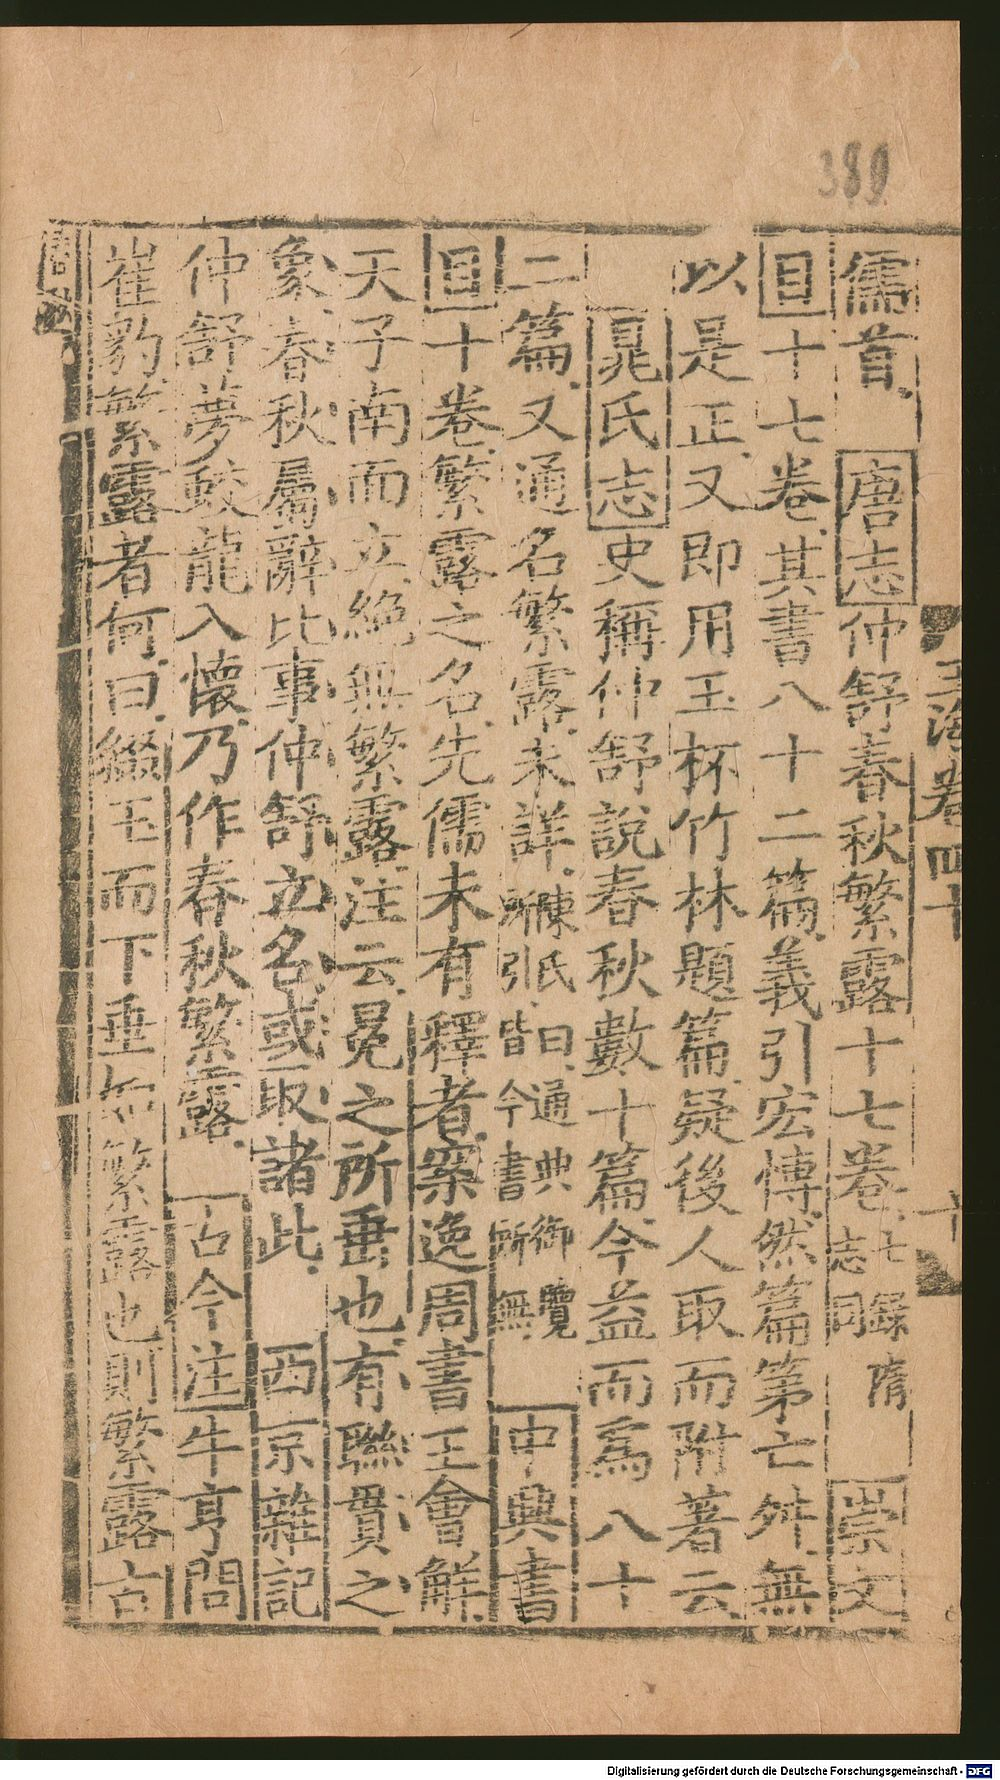 389
玉海卷四十
十
儒首 唐志仲舒春秋繁露十七卷七錄隋志同 崇文
目十七卷其書八十二篇義引宏博然篇第亡舛無
以是正又即用玉杯竹林題篇疑後人取而附著云
晁氏志史稱仲舒說春秋數十篇今益而爲八十
二篇又通名繁露未詳陳氏曰通典御覽所引皆今書所無 中興書
目十卷繁露之名先儒未有釋者案逸周書王會解
天子南面立絻無繁露注云冕之所垂也有聯貫之
象春秋屬辭比事仲舒立名或取諸此 西京雜記
仲舒夢蛟龍入懷乃作春秋繁露 古今注牛亨問
崔豹繁露者何曰綴玉而下垂如繁露也則繁露古
Digitalisierung gefördert durch die Deutsche Forschungsgemeinschaft - DFG